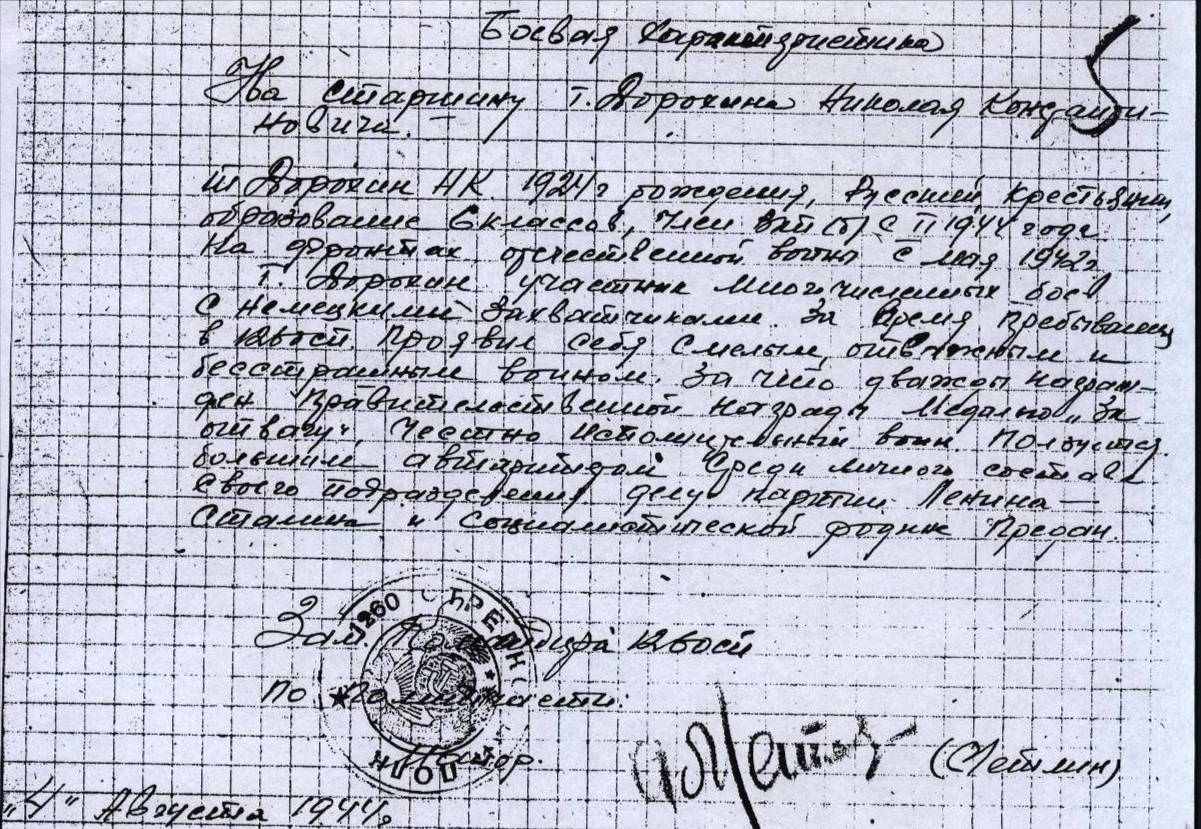 Боевая характеристика
5
На старшину т. Дорохина Николая Константи-
новича.
т Дорохин НК 1924 г рождения, Русский, крестьянин,
образование 6 классов, член ВКП(б) с II 1944 года
На фронтах отечественной войны с мая 1942 г
т. Дорохин участник многочисленных боев
с немецкими захватчиками. За время пребывания
в проявил себя смелым, отважным и
бесстрашным воином. За что дважды награж-
ден правительственной награды Медалью „За
отвагу“, честно исполнительный воин. Пользуется
большим авторитетом среди личного состава
своего подразделения делу партии Ленина —
Сталина и социалистической родине Предан.
1260 СТРЕЛК
Зам. Командира
по Полит части.
Майор.
ПОЛК
„4“ Августа 1944 г